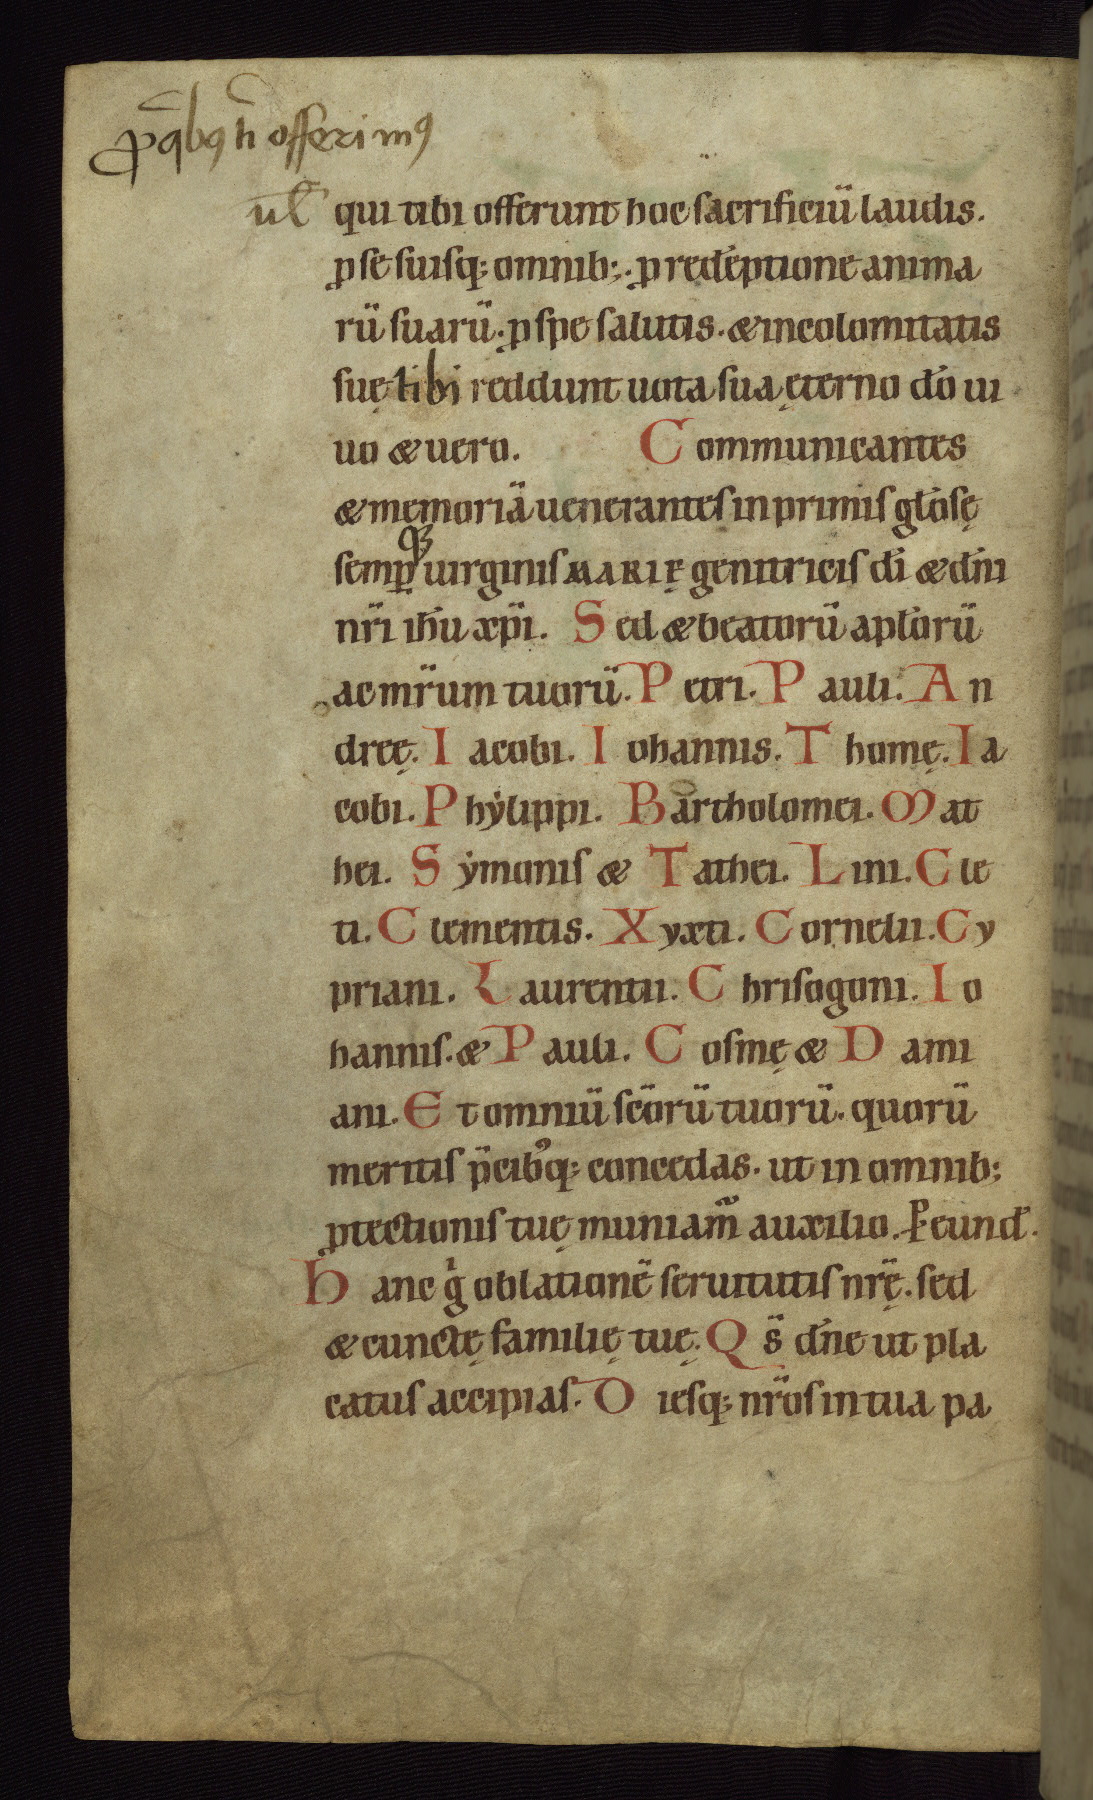 ꝓ q̄bꝯ h̄ offerimꝯ
ul̄ qui tibi offerunt hoc sacrificiū laudis.
ꝓ se suisq; omnib;. ꝓ redēptione anima
rū suarū. ꝓ spe salutis. & incolomitatis
suę tibi reddunt uota sua ęterno dō ui
uo & uero. Communicantes
& memoriā uenerantes in primis gl̄osę
semꝑ uirginis MARIĘ genitricis dī & dn̄i
nr̄i ih̄u xp̄i. Sed & beatorū apl̄orū
ac mr̄um tuorū. Petri. Pauli. An
dreę. Iacobi. Iohannis. Thomę. Ia
cobi. Phẏlippi. Bartholomei. Mat
hei. Sẏmonis & Tathei. Lini. Cle
ti. Clementis. Xyxti. Cornelii. Cy
priani. Laurentii. Chrisogoni. Io
hannis. & Pauli. Cosmę & Dami
ani. Et omniū sc̄orū tuorū. quorū
meritis p̄cibꝯq; concedas. ut in omnib;
ꝓtectionis tuę muniam̄ auxilio. ꝑ eund̄.
Hanc g̍ oblationē seruitutis nr̄ę. sed
& cunctę familię tuę. Qs̄ dn̄e ut pla
catus accipias. Diesq; nr̄os in tua pa